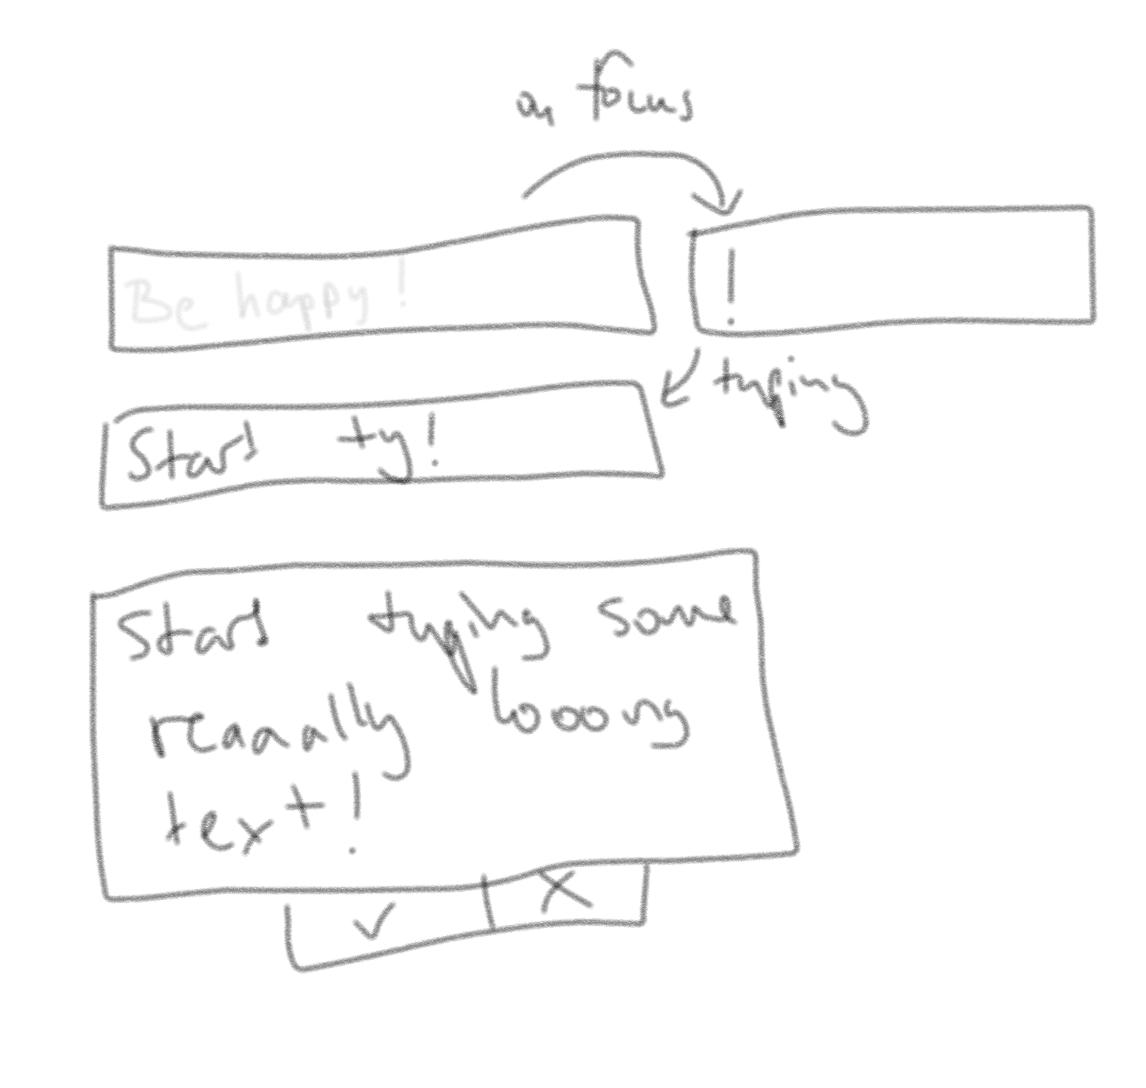 on focus
Be happy!
!
typing
Start ty!
Start typing some
reaaally looong
text!
✓ X